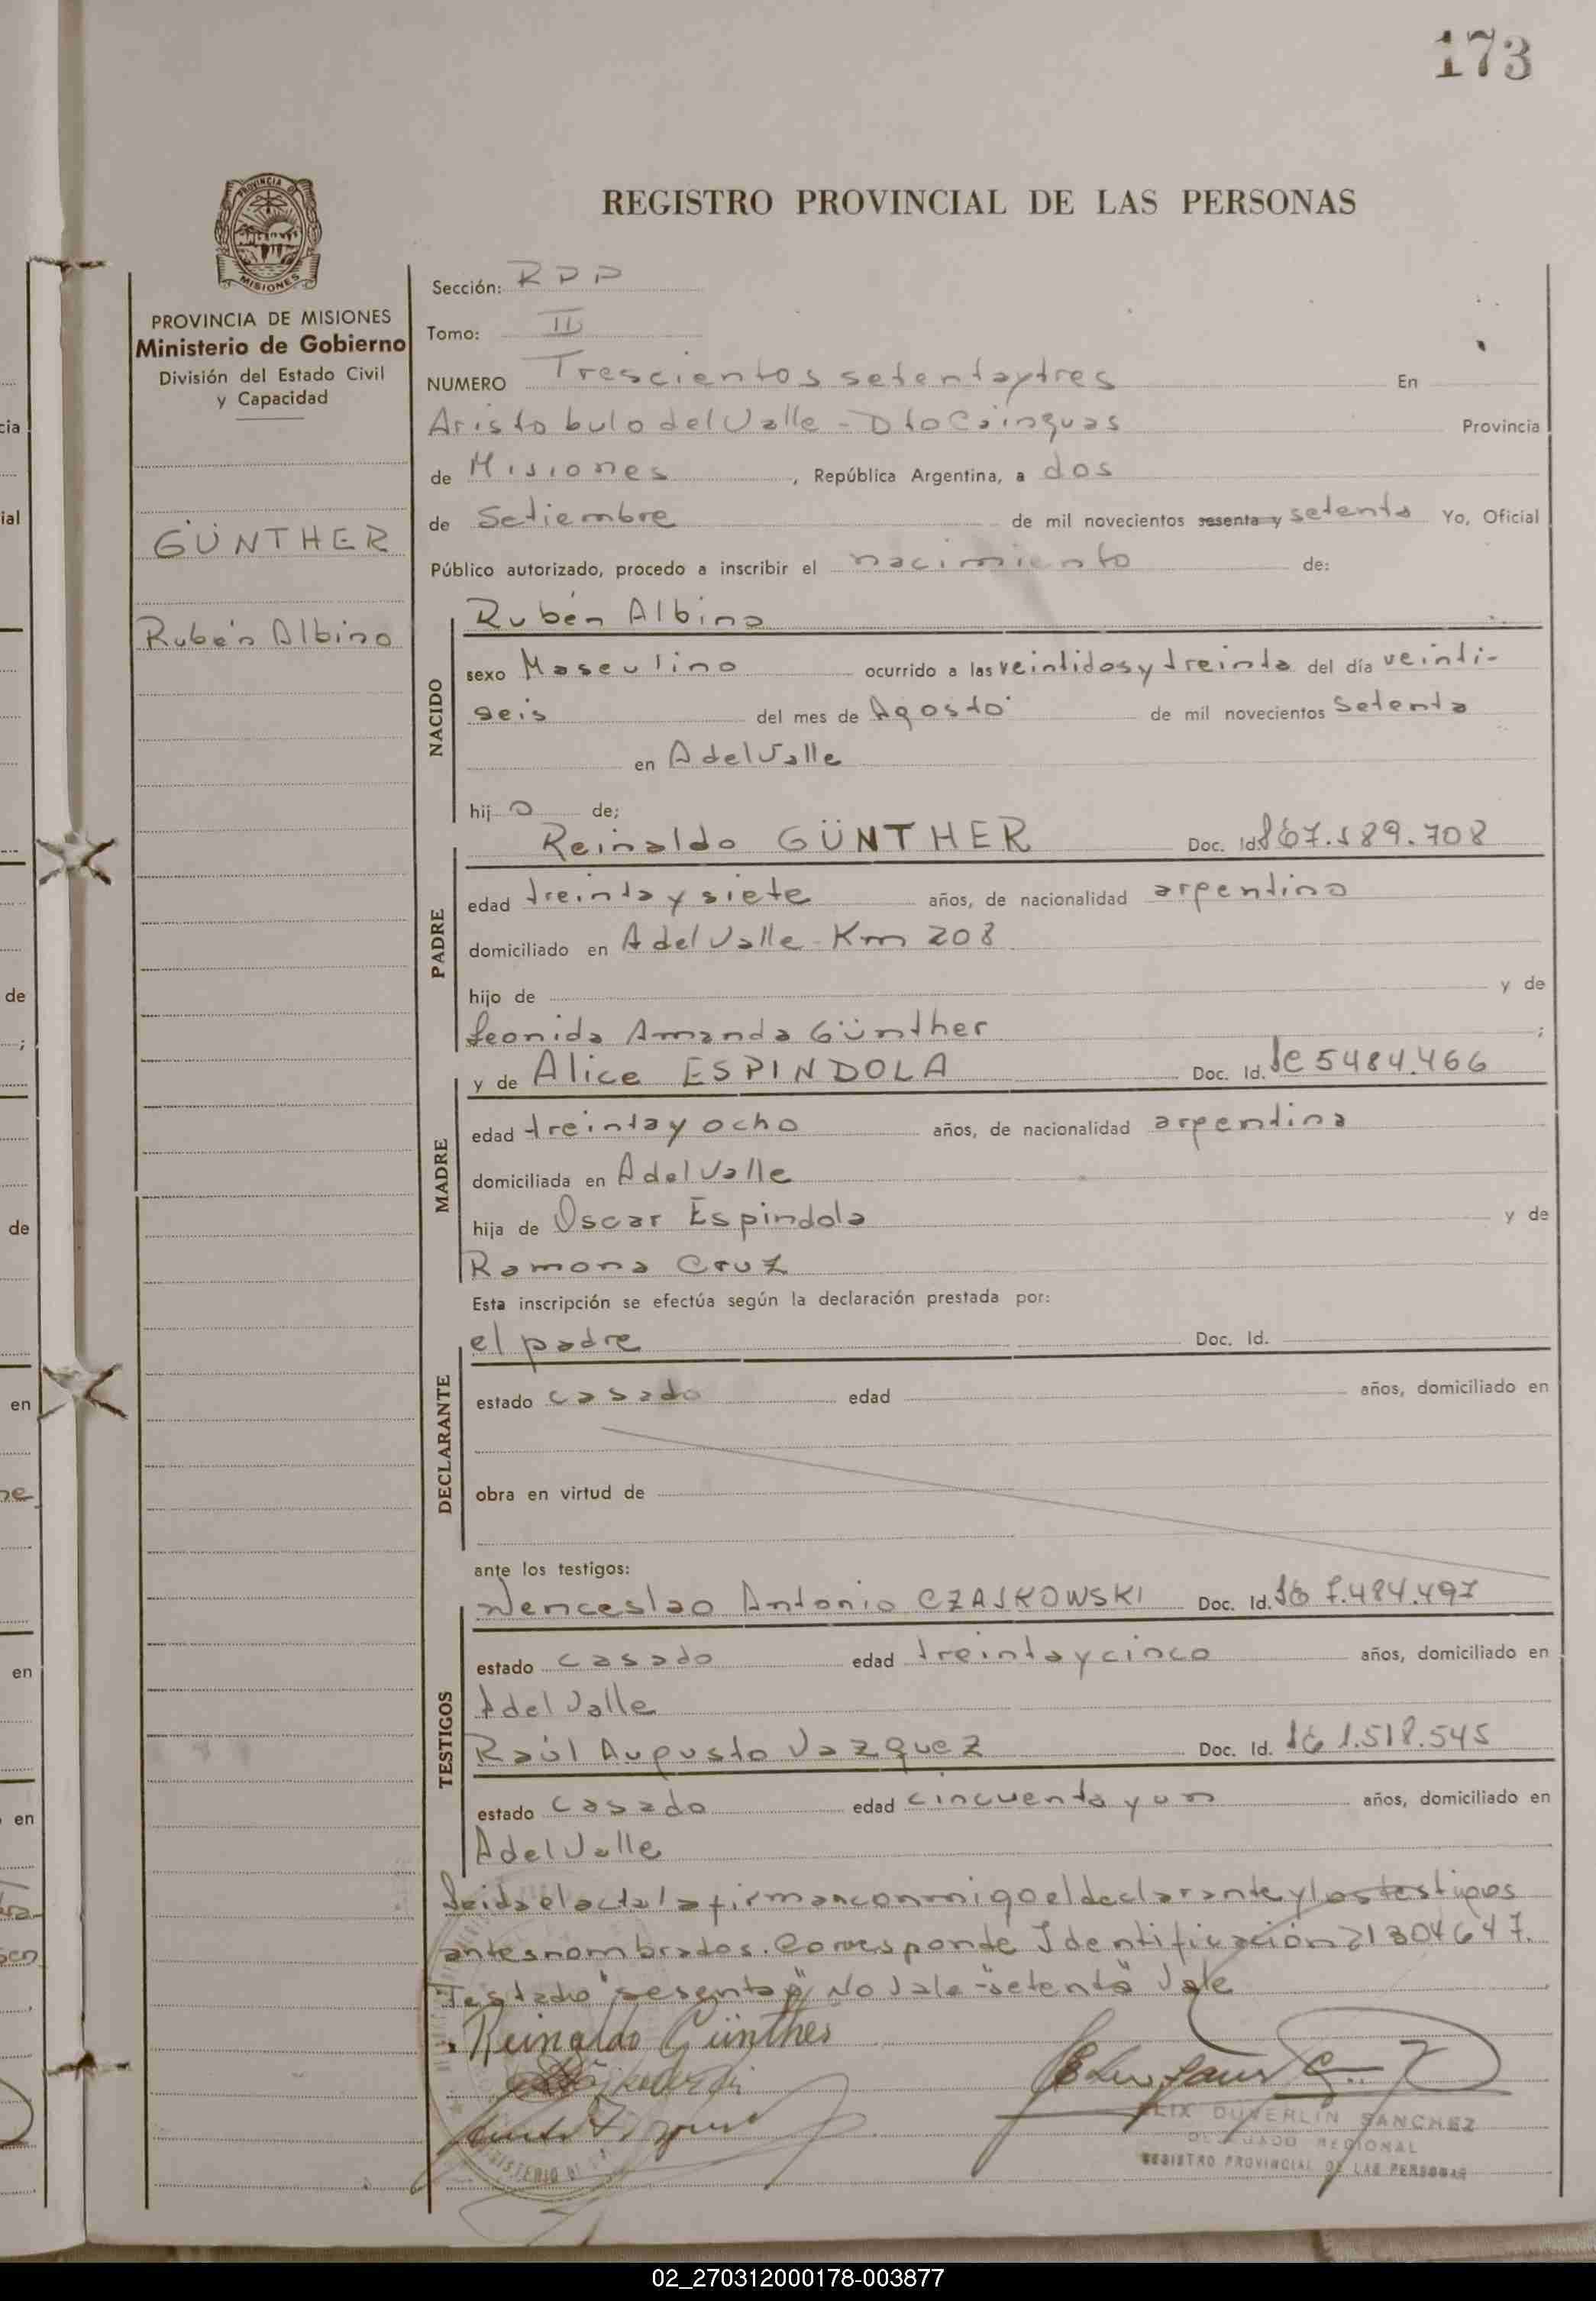 173
REGISTRO PROVINCIAL DE LAS PERSONAS
PROVINCIA DE
MISIONES
PROVINCIA DE MISIONES
Ministerio de Gobierno
División del Estado Civil
y Capacidad
GÜNTHER
Rubén Albino
Sección: RPP
Tomo: II
NUMERO Trescientos setentaytres En
Aristobulo del Valle - Dto Cainguas Provincia
de Misiones, República Argentina, a dos
de Setiembre de mil novecientos sesenta y setenta Yo, Oficial
Público autorizado, procedo a inscribir el nacimiento de:
NACIDO
Rubén Albino
sexo Masculino ocurrido a las veintidos y treinta del día veinti-
seis del mes de Agosto de mil novecientos setenta
en A del Valle
hij o de;
PADRE
Reinaldo GÜNTHER Doc. Id. 7.189.708
edad treinta y siete años, de nacionalidad argentino
domiciliado en A del Valle - Km 208
hijo de y de
Leonida Amanda Günther ;
MADRE
y de Alice ESPINDOLA Doc. Id. 5484.466
edad treinta y ocho años, de nacionalidad argentina
domiciliada en A del Valle
hija de Oscar Espindola y de
Ramona Cruz
Esta inscripción se efectúa según la declaración prestada por:
DECLARANTE
el padre Doc. Id.
estado casado edad años, domiciliado en
obra en virtud de
ante los testigos:
TESTIGOS
Wenceslao Antonio CZAJKOWSKI Doc. Id. 7.484.497
estado casado edad treinta y cinco años, domiciliado en
A del Valle
Raúl Augusto Vazquez Doc. Id. 1.518.545
estado casado edad cincuenta y un años, domiciliado en
A del Valle
Leida el acta la firman conmigo el declarante y los testigos
antes nombrados. Corresponde Identificación 21304647.
Testado "sesenta y" No Vale - "setenta" Vale
Reinaldo Günther
FELIX DUVERLIN SANCHEZ
DELEGADO REGIONAL
REGISTRO PROVINCIAL DE LAS PERSONAS
02_270312000178-003877